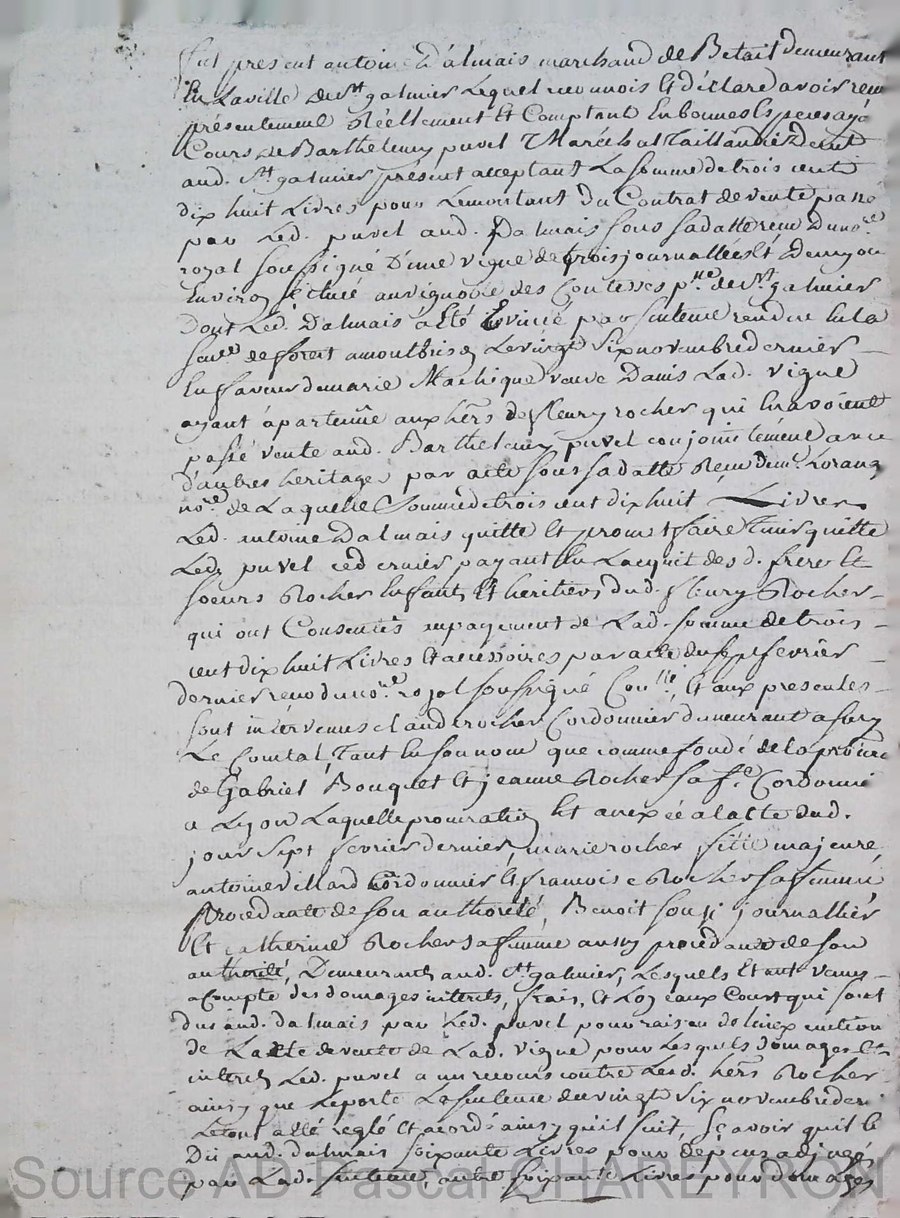 fut présent antoine Dalmais marchand de Betail demeurant
En Laville de st galmier Lequel reconnois Et déclare avoir reçu
présentement Réellement Et Comptant En bonnes Especes ayt
Cours de Barthelemy puvel Maréchal taillandier demt
aud. st galmier présent acceptant La somme de trois cent
dix huit Livres pour Lemontant Du Contrat de vente passé
par Led. puvel aud. Dalmais sous sa datte reçu Du nore
royal soussigné D'une vigne de trois journallées Et Demy ou
Environ scituée au vignoble des Comtesses psse de st galmier
Dont Led. Dalmais a Eté Evincé par sentence rendue En la
senée de forest a montbrison Le vingt six novembre dernier
En faveur de marie Machique veuve Danis Lad. vigne
ayant apartenue aux hers de fleury rocher qui En avoient
passé vente aud. Barthelemy puvel conjointement avec
d'autres heritages par acte sous sa datte Reçu de me
nore de Laquelle somme de trois cent dix huit Livres
Led. antoine Dalmais quitte Et promet faire tenir quitte
Led. puvel ce dernier payant En Lacquit des d. freres Et
soeurs Rocher Enfants Et heritiers dud. fleury Rocher
qui ont Consentis au payement de Lad. somme de trois
cent dix huit Livres Et accessoires par acte du sept fevrier
dernier reçu du nore royal soussigné Conlle, Et aux presentes
sont intervenus claude rocher Cordonnier demeurant a sury
Le Comtal, tant En son nom que comme fondé de la procuration
de Gabriel Bouquet Et jeanne Rocher sa fe Cordonnié
a Lyon Laquelle procuration Est anexée a lacte dud.
jour sept fevrier dernier, marie rocher fille majeure
antoine villard Cordonnier Et francoise Rocher sa femme
procedante de son authorité, Benoit journallier
Et catherine Rocher sa femme aussy procedante de son
authorité, Demeurants aud. st galmier, Lesquels Etant venus
a Compte des domages interets, frais, Et Loyeaux Court qui sont
dus aud. dalmais par Led. puvel pour raison de linexecution
de Lacte de vente de Lad. vigne pour Lesquels domages Et
interets Led. puvel a un recours contre Lesd. hers Rocher
ainsy que Le porte La sentence du vingt six novembre der
Le tout a Eté reglé Et acordé ainsy qu'il suit, sçavoir quil Est
Dû aud. dalmais soixante Livres pour dépens adjugés
par Lad. sentence, autre soixante Livres pour domages
Source AD Pascal CHAREYRON